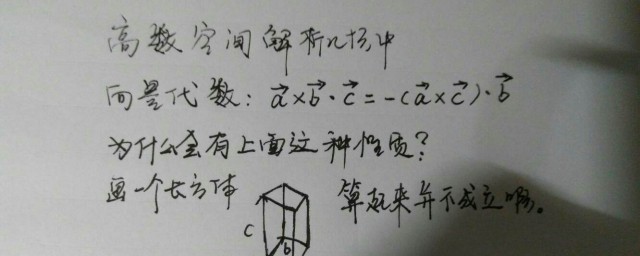 高数空间解析几何中
向量代数: a⃗×b⃗·c⃗=-(a⃗×c⃗)·b⃗
为什么会有上面这种性质?
画一个长方体
c
b
算起来并不成立啊。